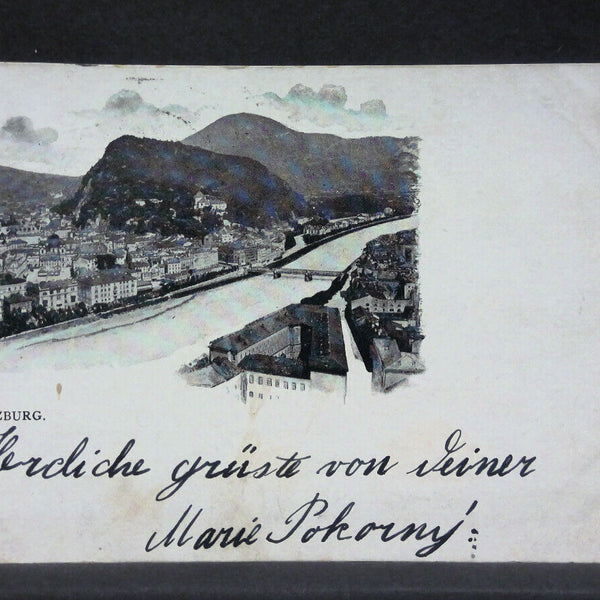 ZBURG.
Herdliche grüste von deiner
Marie Pokorný